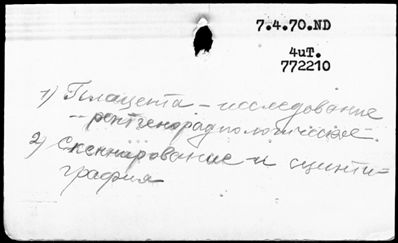 7.4.70.ND
4иТ.
772210
1) Плацента – исследование
-- рентгенорадиологическое.
2) Сканирование и сцинти-
графия